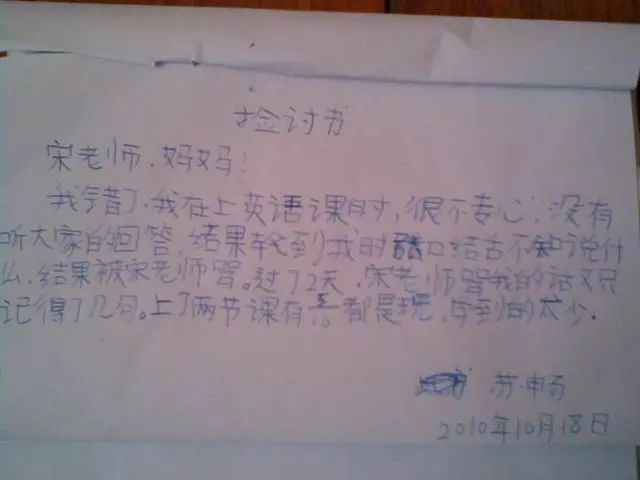 捡讨书
宋老师、妈妈：
我错了，我在上英语课时，很不专心，没有
听大家的回答，结果轮到我时口结舌不知说什
么，结果被宋老师骂。过了2天，宋老师骂我的话又只
记得了几句。上了两节课有5/10都是玩，学到的太少。
苏畅
2010年10月18日